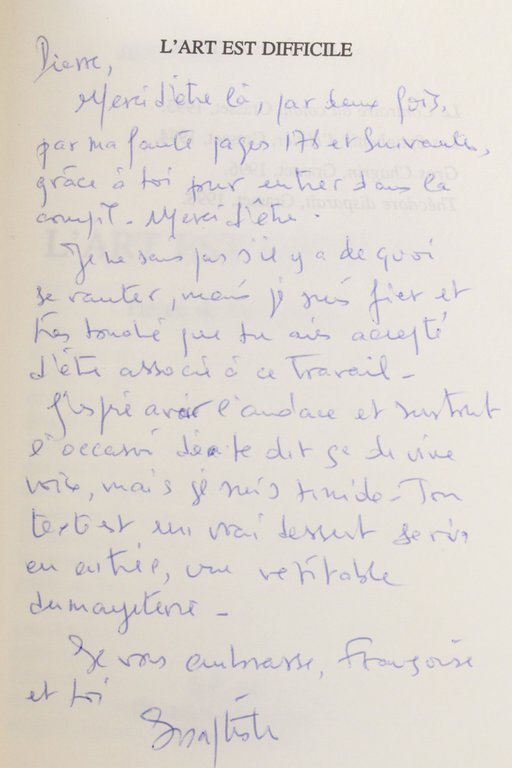 L'ART EST DIFFICILE
Pierre,
Merci d'être là, par deux fois,
par ma faute pages 176 et suivantes,
grâce à toi pour entrer dans la
compil. Merci d'être.
Je ne sais pas s'il y a de quoi
se vanter, mais je suis fier et
très touché que tu aies accepté
d'être associé à ce travail -
avoir l'audace et surtout
l'occasion de te dit ça de vive
voix, mais je suis timide - Ton
texte est un vrai dessert servi
en entrée, une véritable
Je vous embrasse, Françoise
et toi
Baptiste